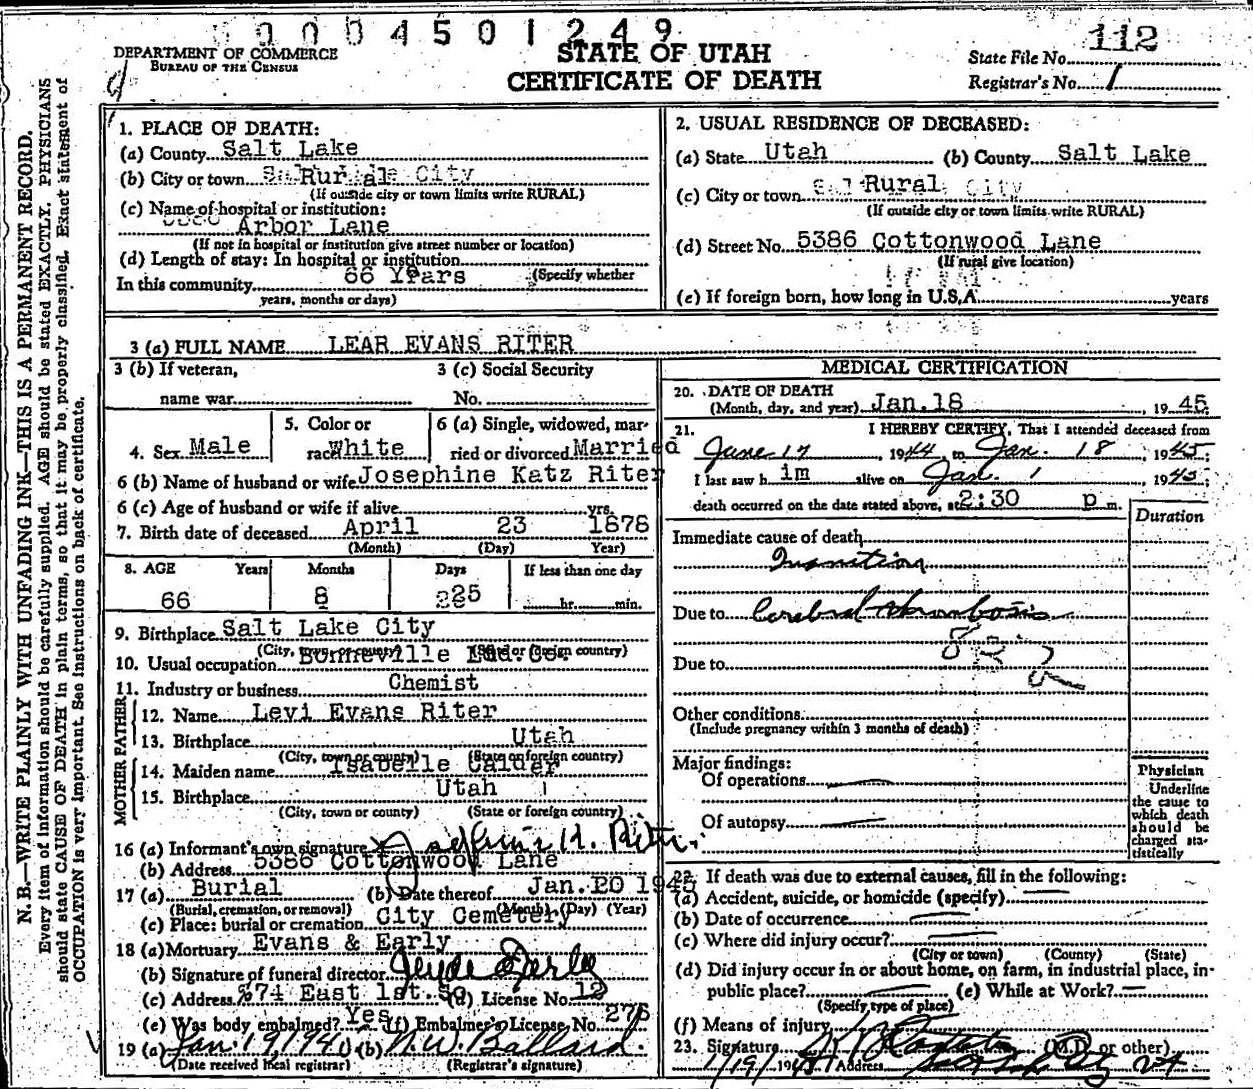 0004501249
DEPARTMENT OF COMMERCE
BUREAU OF THE CENSUS
STATE OF UTAH
CERTIFICATE OF DEATH
State File No. 112
Registrar's No. 1
N. B.—WRITE PLAINLY WITH UNFADING INK—THIS IS A PERMANENT RECORD.
Every item of information should be carefully supplied. AGE should be stated EXACTLY. PHYSICIANS
should state CAUSE OF DEATH in plain terms, so that it may be properly classified. Exact statement of
OCCUPATION is very important. See instructions on back of certificate.
1. PLACE OF DEATH:
(a) County Salt Lake
(b) City or town Rural
(If outside city or town limits write RURAL)
(c) Name of hospital or institution:
Arbor Lane
(If not in hospital or institution give street number or location)
(d) Length of stay: In hospital or institution
In this community 66 Years (Specify whether
years, months or days)
2. USUAL RESIDENCE OF DECEASED:
(a) State Utah (b) County Salt Lake
(c) City or town Rural
(If outside city or town limits write RURAL)
(d) Street No. 5386 Cottonwood Lane
(If rural give location)
(e) If foreign born, how long in U.S.A. years
3 (a) FULL NAME LEAR EVANS RITER
3 (b) If veteran, name war
3 (c) Social Security No.
4. Sex Male
5. Color or race White
6 (a) Single, widowed, married or divorced Married
6 (b) Name of husband or wife Josephine Katz Riter
6 (c) Age of husband or wife if alive yrs.
7. Birth date of deceased April 23 1878
(Month) (Day) Year)
8. AGE Years Months Days If less than one day
66 8 25 hr. min.
9. Birthplace Salt Lake City
(City, town or county) (State or foreign country)
10. Usual occupation Bonneville Lab. Co.
11. Industry or business Chemist
FATHER
12. Name Levi Evans Riter
13. Birthplace Utah
(City, town or county) (State or foreign country)
MOTHER
14. Maiden name Isabelle Calder
15. Birthplace Utah
(City, town or county) (State or foreign country)
16 (a) Informant's own signature x Josephine K. Riter
(b) Address 5386 Cottonwood Lane
17 (a) Burial (b) Date thereof Jan. 20 1945
(Burial, cremation, or removal) (Month) (Day) (Year)
(c) Place: burial or cremation City Cemetery
18 (a) Mortuary Evans & Early
(b) Signature of funeral director Clyde Early
(c) Address 574 East 1st. So (d) License No. 12
(e) Was body embalmed? Yes (f) Embalmer's License No. 276
19 (a) Jan. 19, 194 (b) N. W. Ballard.
(Date received local registrar) (Registrar's signature)
MEDICAL CERTIFICATION
20. DATE OF DEATH
(Month, day, and year) Jan. 18, 1945
21. I HEREBY CERTIFY, That I attended deceased from
June 17, 1944, to Jan. 18, 1945;
I last saw him alive on Jan. 1 1945;
death occurred on the date stated above, at 2:30 p m.
Duration
Immediate cause of death
Inanition
Due to Cerebral thrombosis
83
Due to
Other conditions
(Include pregnancy within 3 months of death)
Major findings:
Of operations
Of autopsy
Physician
Underline
the cause to
which death
should be
charged sta-
tistically
22. If death was due to external causes, fill in the following:
(a) Accident, suicide, or homicide (specify)
(b) Date of occurrence
(c) Where did injury occur?
(City or town) (County) (State)
(d) Did injury occur in or about home, on farm, in industrial place, in
public place? (e) While at Work?
(Specify type of place)
(f) Means of injury
23. Signature (M.D. or other)
1/19/1945 Address